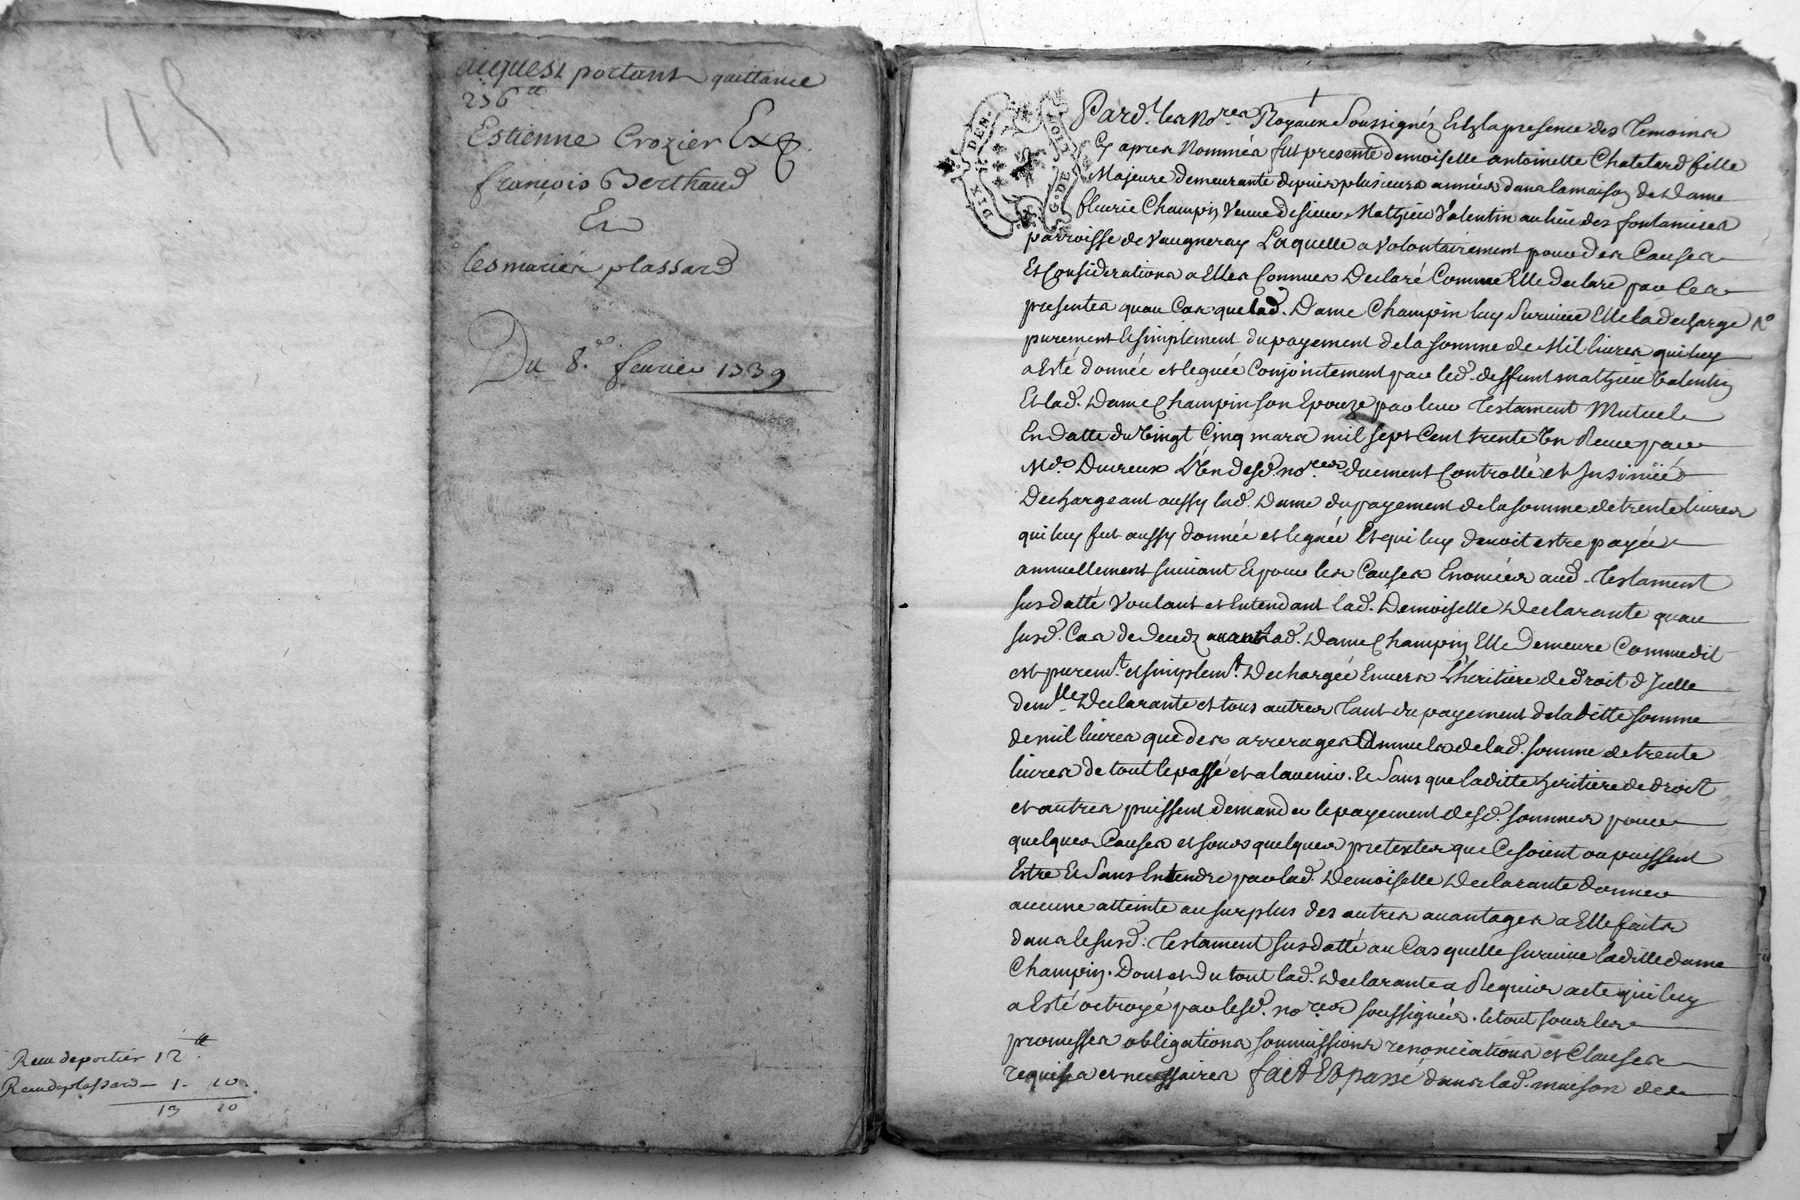 acquest portant quittance
236tt
Estienne Crozier Exp.
françois Berthaud
Et
les mariés plassard
Du 8e. fevrier 1739
Receu de portier 12tt.
Receu de plassard — 1. 10.
13 10
DIX DEN.
G. DE LION
Pard.t les No.res Royaux Soussignés Et En la presence des Temoins
Cy apres Nommés fut presente demoiselle antoinette Chatelard fille
Majeure demeurante depuis plusieurs années dans la maison de Dame
fleurie Champin Veuve de sieur Mathieu Valentin au lieu des fontanieres
parroisse de Vaugneray Laquelle a Volontairement pour des Causes
Et Considerations a Elles Connues Declaré Comme Elle declare par les
presentes quau Cas que lad. Dame Champin luy Survive Elle la decharge
purement Et simplement du payement de la somme de Mil livres qui luy
a Esté donnée et leguée Conjointement par led. deffunt mathieu Valentin
Et lad. Dame Champin son Epouze par leur Testament Mutuel
En datte du Vingt Cinq mars mil sept Cent trente Un Receu par
Me. Dureux L'Un desd. no.res duement Controllé et Insinüé
Dechargeant aussy lad. Dame du payement de la somme de trente livres
qui luy fut aussy donnée et leguée Et qui luy devoit estre payée
annuellement suivant Et pour les Causes Enoncées aud. Testament
susdatté Voulant et Entendant lad. Demoiselle Declarante quau
susd. Cas de deceds avant lad. Dame Champin Elle Demeure Comme dit
est purem.t et simplem.t Dechargée Envers L'heritiere de droit d'Icelle
dem.lle Declarante et tous autres Tant du payement de laditte somme
de mil livres que des arrerages Annuels de lad. somme de trente
livres de tout le passé et a lavenir. Et Sans que laditte heritiere de droit
et autres puissent demander le payement desd. sommes pour
quelques Causes et sous quelques pretextes que Ce soient ou puissent
Estre Et Sans Entendre par lad. Demoiselle Declarante donner
aucune atteinte au surplus des autres avantages a Elle faits
dans le susd. Testament susdatté au Cas quelle survive laditte dame
Champin. Dont et du tout lad. Declarante a Requis acte qui luy
a Esté octroyé par lesd. no.res soussignés. le tout sous les
promesses obligations soumissions renonciations et Clauses
requises et necessaires fait Et passé dans lad. maison de